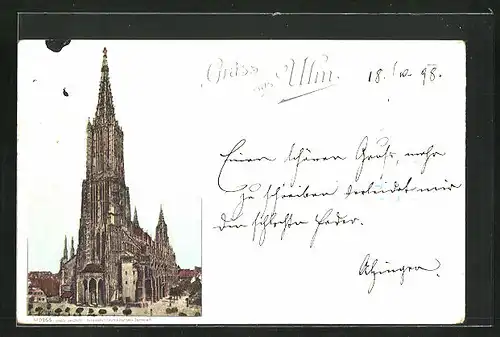 Gruss aus Ulm.
18. IV. 98.
Einen schönen Gruß, mehr
zu schreiben verleidet mir
die schlechte Feder.